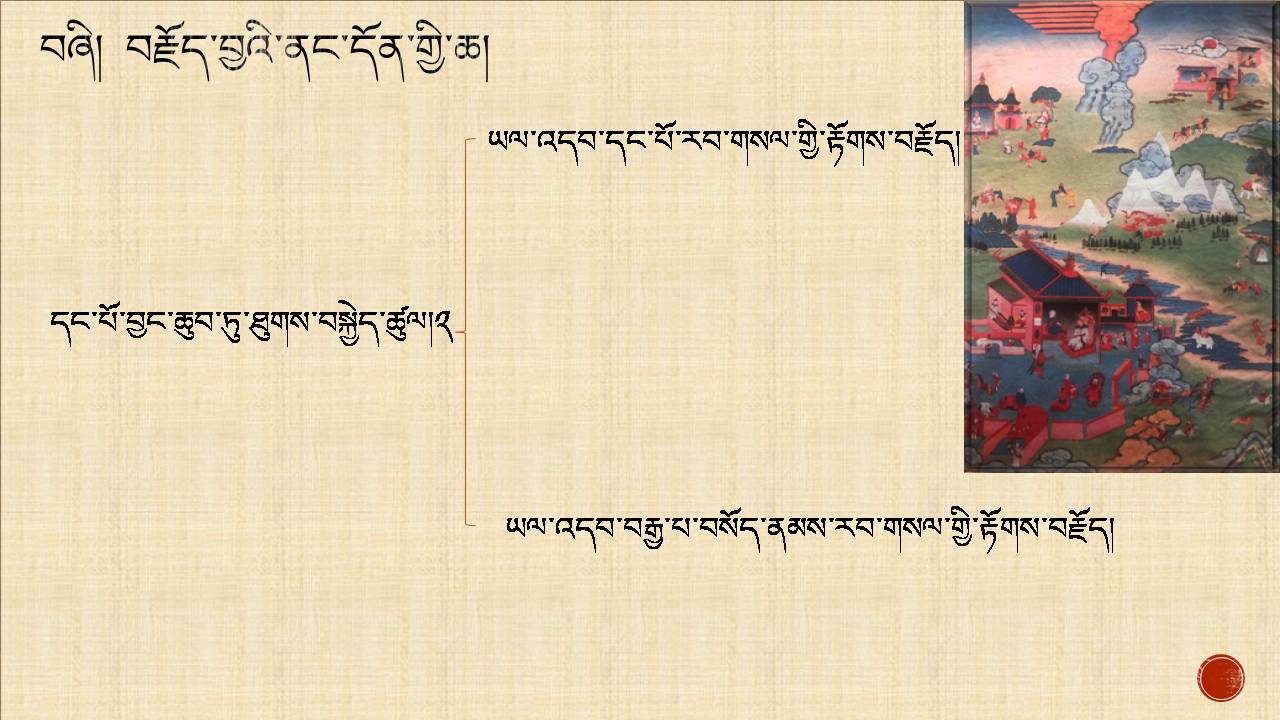 བཞི། བརྗོད་བྱའི་ནང་དོན་གྱི་ཆ།
ཡལ་འདབ་དང་པོ་རབ་གསལ་གྱི་རྟོགས་བརྗོད།
དང་པོ་བྱང་ཆུབ་ཏུ་ཐུགས་བསྐྱེད་ཚུལ།༢
ཡལ་འདབ་བརྒྱ་པ་བསོད་ནམས་རབ་གསལ་གྱི་རྟོགས་བརྗོད།